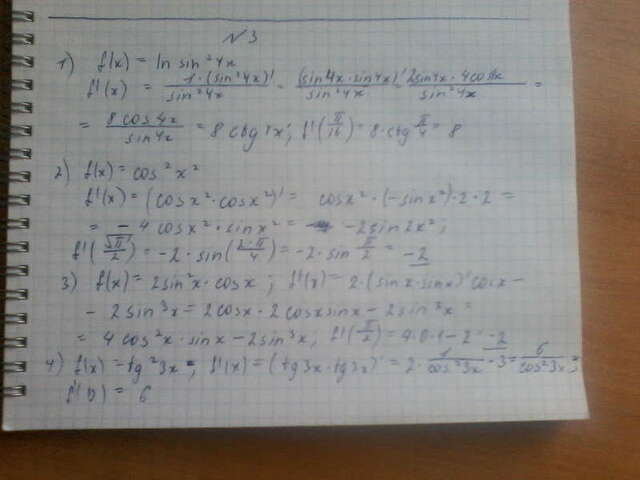 №3
1) f(x) = ln sin²4x
f'(x) = 1·(sin²4x)'/sin²4x = (sin4x·sin4x)'/sin²4x = 2sin4x·4cos4x/sin²4x =
= 8cos4x/sin4x = 8ctg4x; f'(π/16) = 8·ctg π/4 = 8
2) f(x) = cos²x²
f'(x) = (cosx²·cosx²)' = cosx²·(-sinx²)·2·2 =
= -4cosx²·sinx² = -2sin2x²;
f'(√π/2) = -2·sin(2·π/4) = -2·sin π/2 = -2
3) f(x) = 2sin²x·cosx; f'(x) = 2·(sinx·sinx)'cosx -
- 2sin³x = 2cosx·2cosxsinx - 2sin³x =
= 4cos²x·sinx - 2sin³x; f'(π/2) = 4·0·1 - 2 = -2
4) f(x) = tg²3x; f'(x) = (tg3x·tg3x)' = 2·1/cos²3x·3 = 6/cos²3x;
) = 6